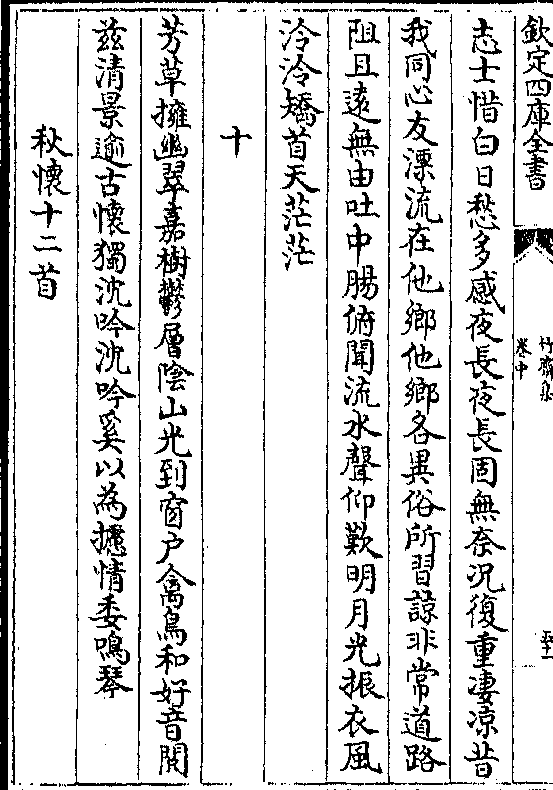 欽定四庫全書
竹齋集
卷中
志士惜白日愁多感夜長夜長固無奈况復重凄凉昔
我同心友漂流在他鄉他鄉各異俗所習諒非常道路
阻且遠無由吐中腸俯聞流水聲仰歎明月光振衣風
泠泠矯首天茫茫
十
芳草擁幽翠嘉樹鬱層陰山光到窗户禽鳥和好音閱
兹清景逾古懷獨沈吟沈吟奚以為攄情委鳴琴
秋懷十二首